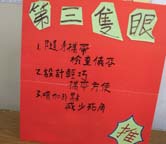 第三隻眼
1.隨身攜帶
檢查儀容
2.設計輕巧
攜帶方便
3.增加外點
減少死角
推